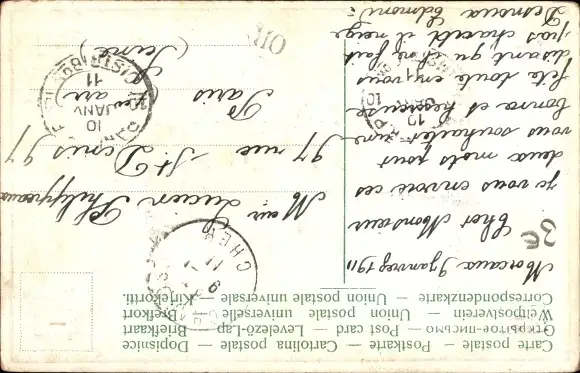 Carte postale — Postkarte — Cartolina postale — Dopisnice
Открытое-письмо — Post card — Levelező-Lap — Briefkaart
Weltpostverein — Union postale universelle — Brefkort
Correspondenzkarte — Union postale universale — Kirjekortti.
janvier 1911
Cher Monsieur
je vous envoie ces
deux mots pour
vous souhaiter une
bonne et heureuse
fête toute en vous
disant qu'il ne fait
pas chaud il neige
Edmond
Monsieur Lucien Philippeaux
97 rue St Denis 97
Paris
(Seine)
CHER
10
JANV
11